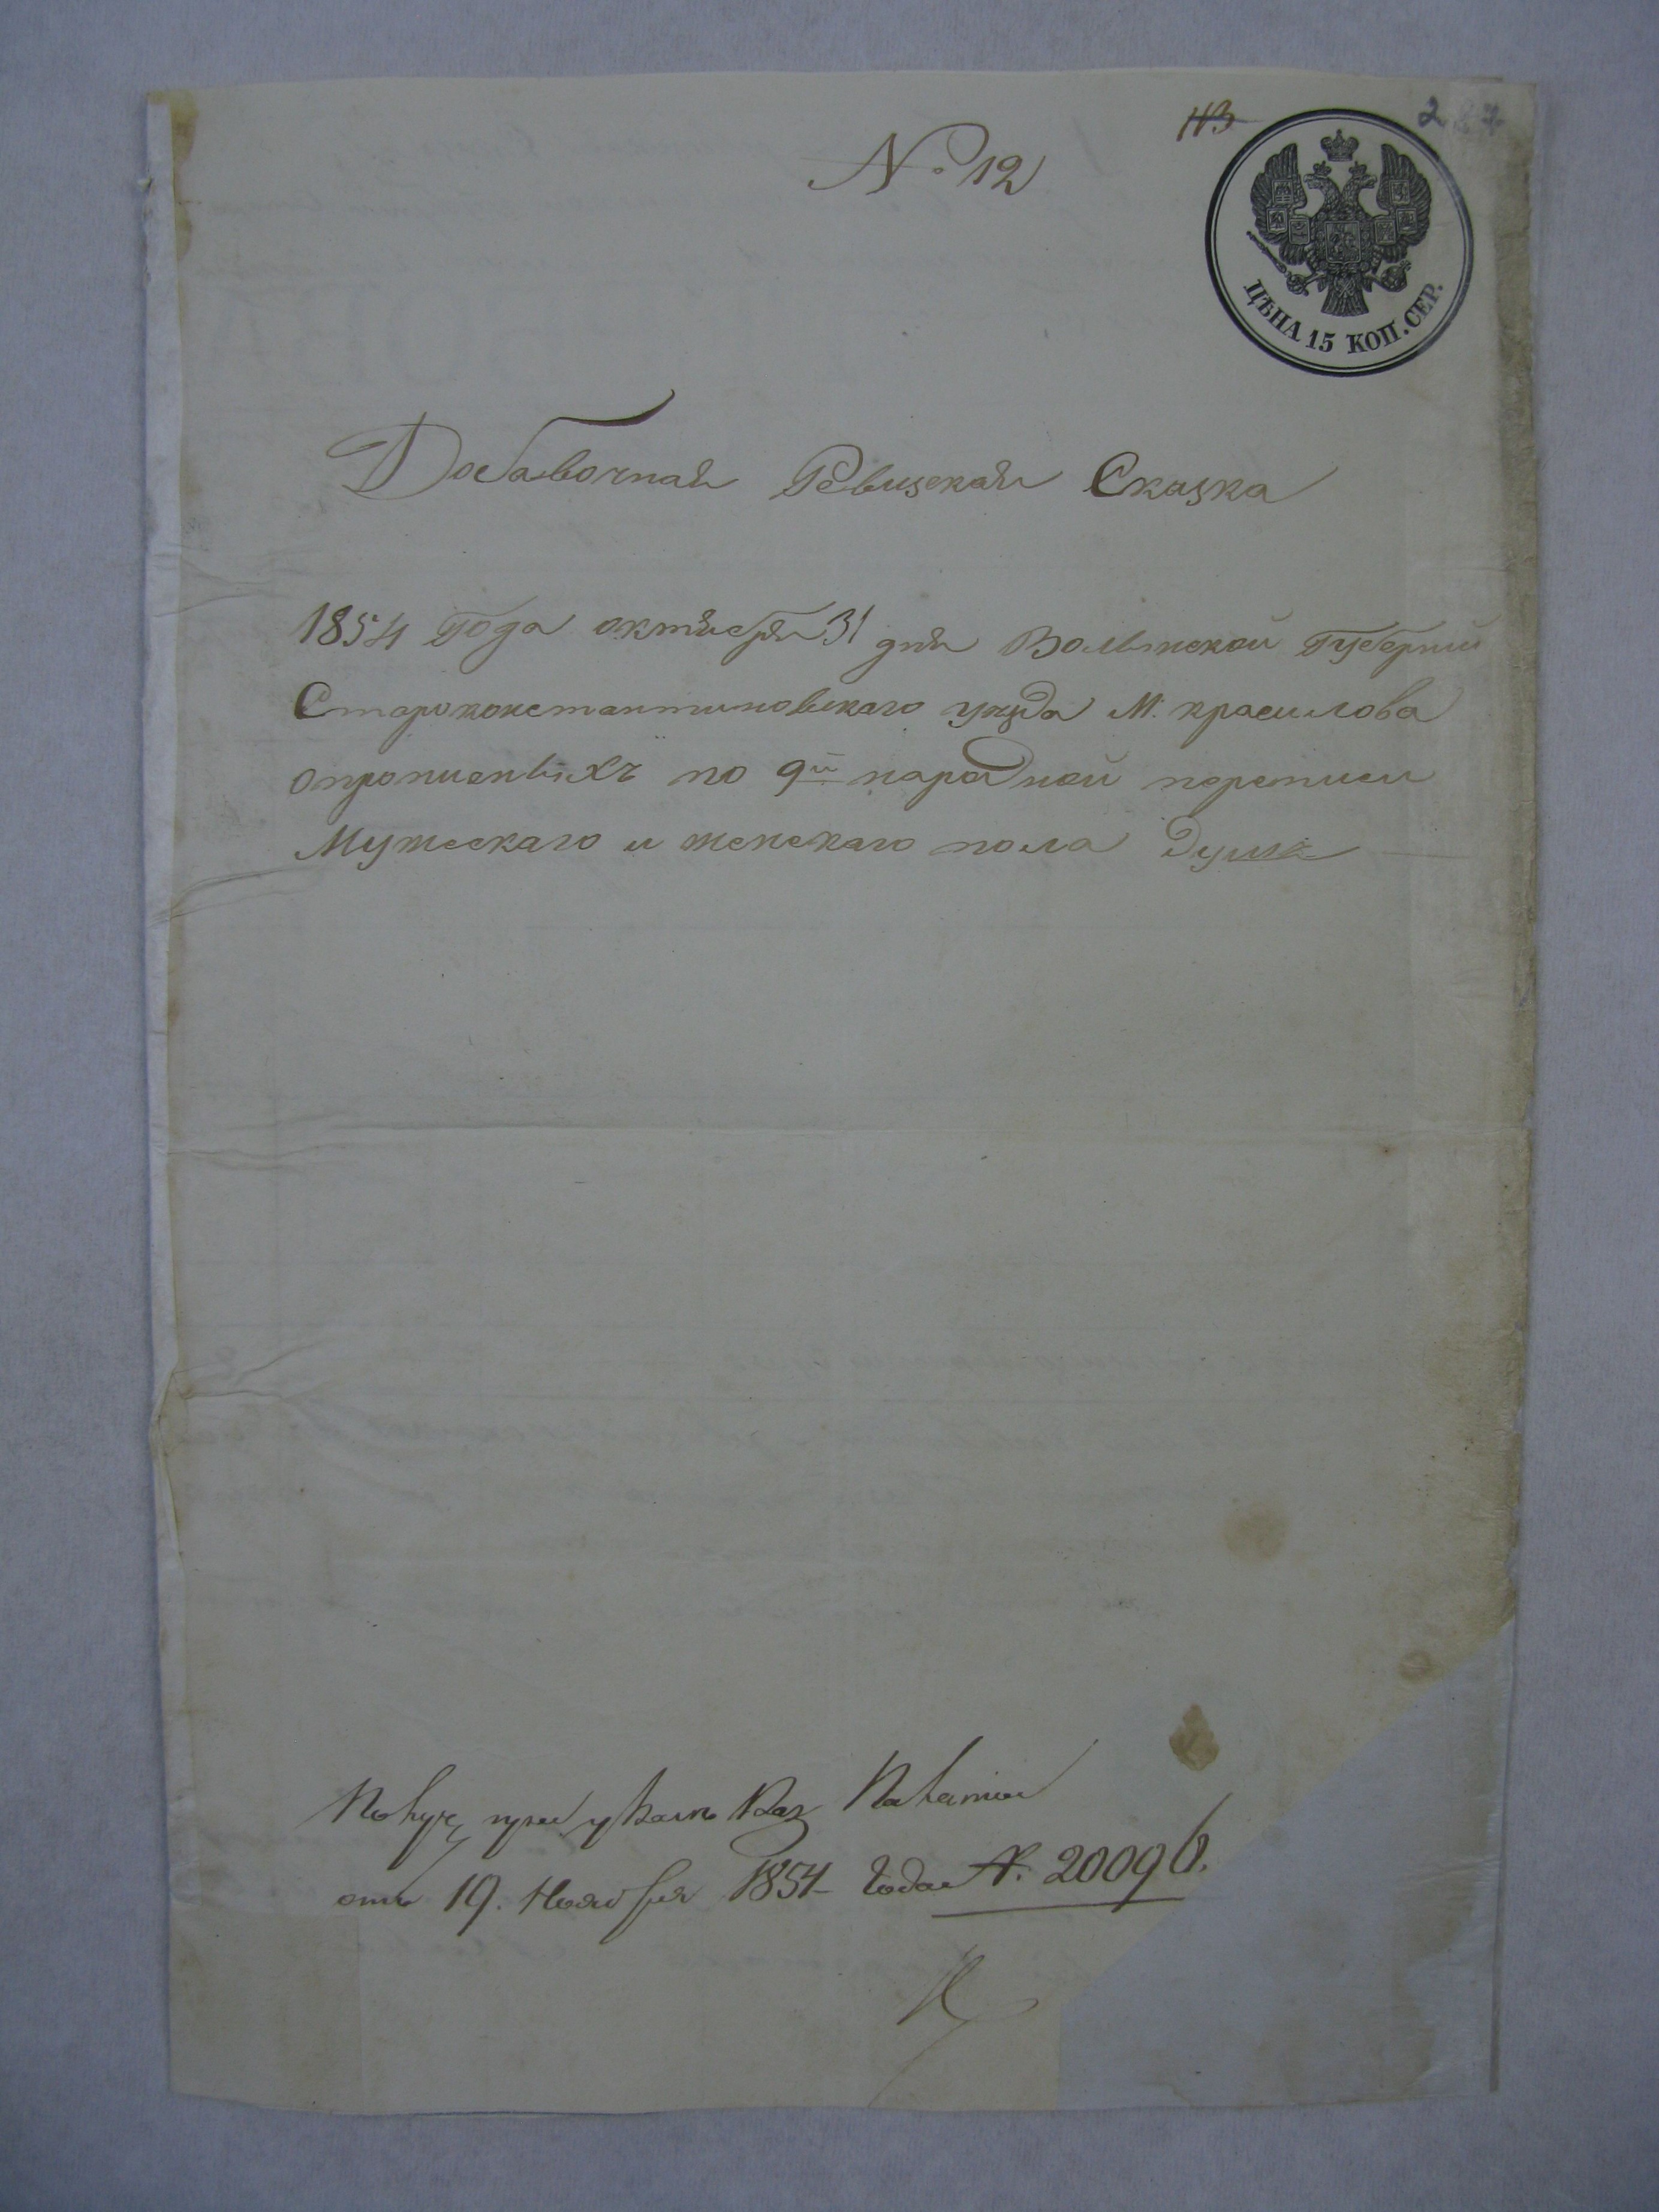 113
№ 12
ЦѢНА 15 КОП. СЕР.
Добавочная Ревизская Сказка
1854 Года октября 31 дня Волынской Губернии
Староконстантиновскаго уезда М. красилова
опрописныхъ по 9й народной переписи
Мужескаго и женскаго пола душъ
при указѣ Каз Палаты
отъ 19. Ноября 1854 года №. 20096.